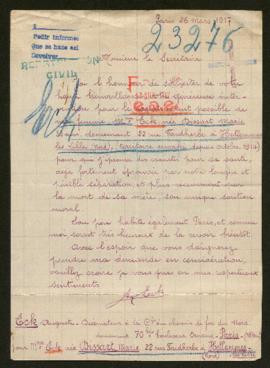 Paris 26 mars 1917
Pedir informes
que se hace así
23276
Monsieur le Secrétaire
CIVIL
J'ai l'honneur de solliciter de votre
haute bienveillance
pour le possible de
ma femme Mme Eck née Bissart Marie
demeurant 22 rue Faidherbe à Hellemmes
les Lille (Nord), (territoire envahi depuis octobre 1914)
pour qui j'éprouve des craintes pour sa santé
fortement éprouvée par notre longue et
pénible séparation, et plus récemment
par la mort de sa mère, son unique soutien
moral.
Son père habite également Paris, et comme
moi serait très heureux de la revoir bientôt.
Avec l'espoir que vous daignerez
prendre ma demande en considération,
veuillez croire je vous prie en mes respectueux
sentiments
Eck
Eck Auguste à la Cie du chemin de fer du Nord
demeurant 70 Paris
pour Mme Eck née Bissart Marie 22 rue Faidherbe à Hellemmes